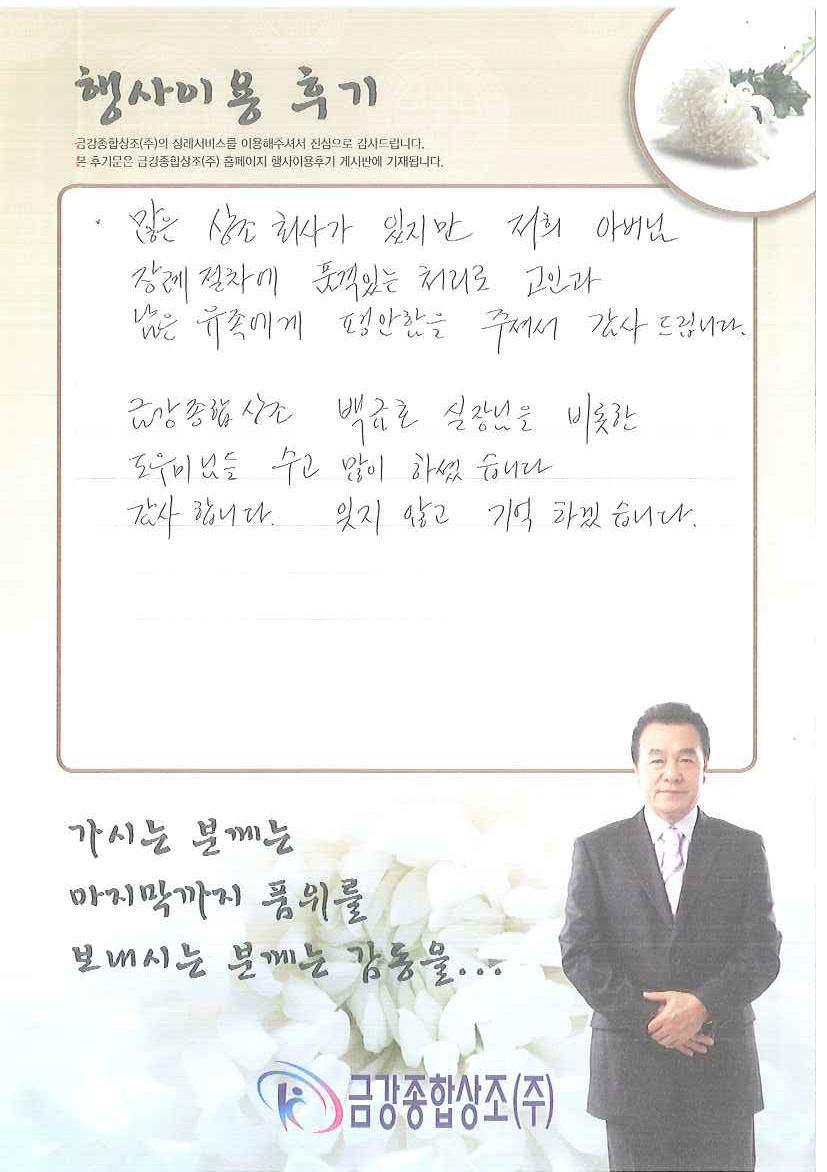 행사이용 후기
금강종합상조(주)의 장례서비스를 이용해주셔서 진심으로 감사드립니다.
본 후기문은 금강종합상조(주) 홈페이지 행사이용후기 게시판에 기재됩니다.
· 많은 상조 회사가 있지만 저희 아버님
장례 절차에 품격있는 처리로 고인과
남은 유족에게 평안함을 주셔서 감사 드립니다.
금강종합상조 백금호 실장님을 비롯한
도우미님들 수고 많이 하셨 습니다
감사 합니다. 잊지 않고 기억 하겠 습니다.
가시는 분께는
마지막까지 품위를
보내시는 분께는 감동을...
금강종합상조(주)